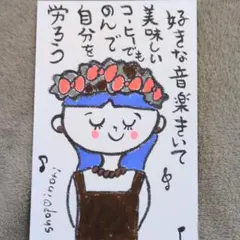 好きな音楽きいて
美味しい
コーヒーでも
のんで
自分を
労ろう